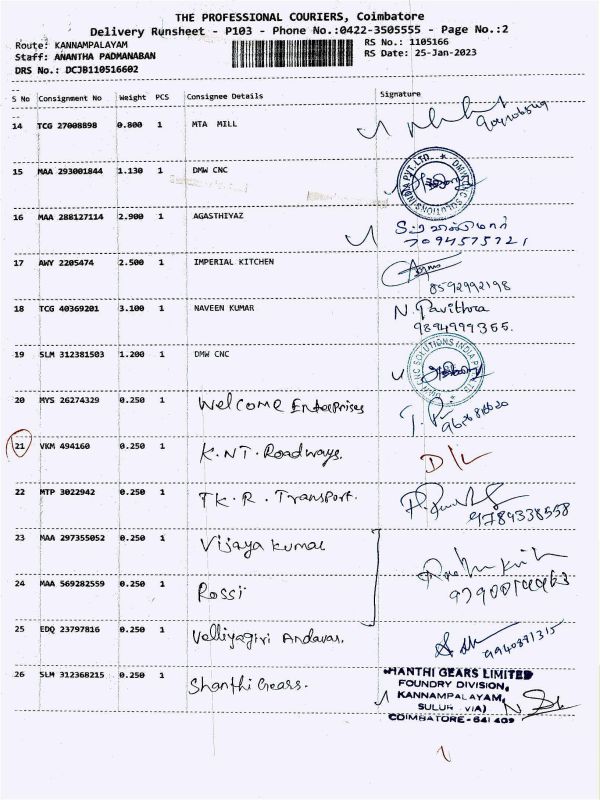 THE PROFESSIONAL COURIERS, Coimbatore
Delivery Runsheet - P103 - Phone No.:0422-3505555 - Page No.:2
Route: KANNAMPALAYAM
RS No.: 1105166
Staff: ANANTHA PADMANABAN
RS Date: 25-Jan-2023
DRS No.: DCJB110516602
S No Consignment No Weight PCS Consignee Details Signature
14 TCG 27008898 0.800 1 MTA MILL
15 MAA 293001844 1.130 1 DMW CNC
16 MAA 288127114 2.900 1 AGASTHIYAZ
7094575721
17 AWY 2205474 2.500 1 IMPERIAL KITCHEN
8592992198
18 TCG 40369201 3.100 1 NAVEEN KUMAR N. Pavithra
9894999355.
19 SLM 312381503 1.200 1 DMW CNC
20 MYS 26274329 0.250 1 Welcome Enterprises
21 VKM 494160 0.250 1 K.NT. Roadways. D/L
22 MTP 3022942 0.250 1 TK.R. Transport.
9789338558
23 MAA 297355052 0.250 1 Vijaya kumar
24 MAA 569282559 0.250 1 Rossi
25 EDQ 23797816 0.250 1 Velliyagiri Andavar.
9940891315
26 SLM 312368215 0.250 1 Shanthi Gears.
SHANTHI GEARS LIMITED
FOUNDRY DIVISION,
KANNAMPALAYAM,
SULUR (VIA)
COIMBATORE - 641 409